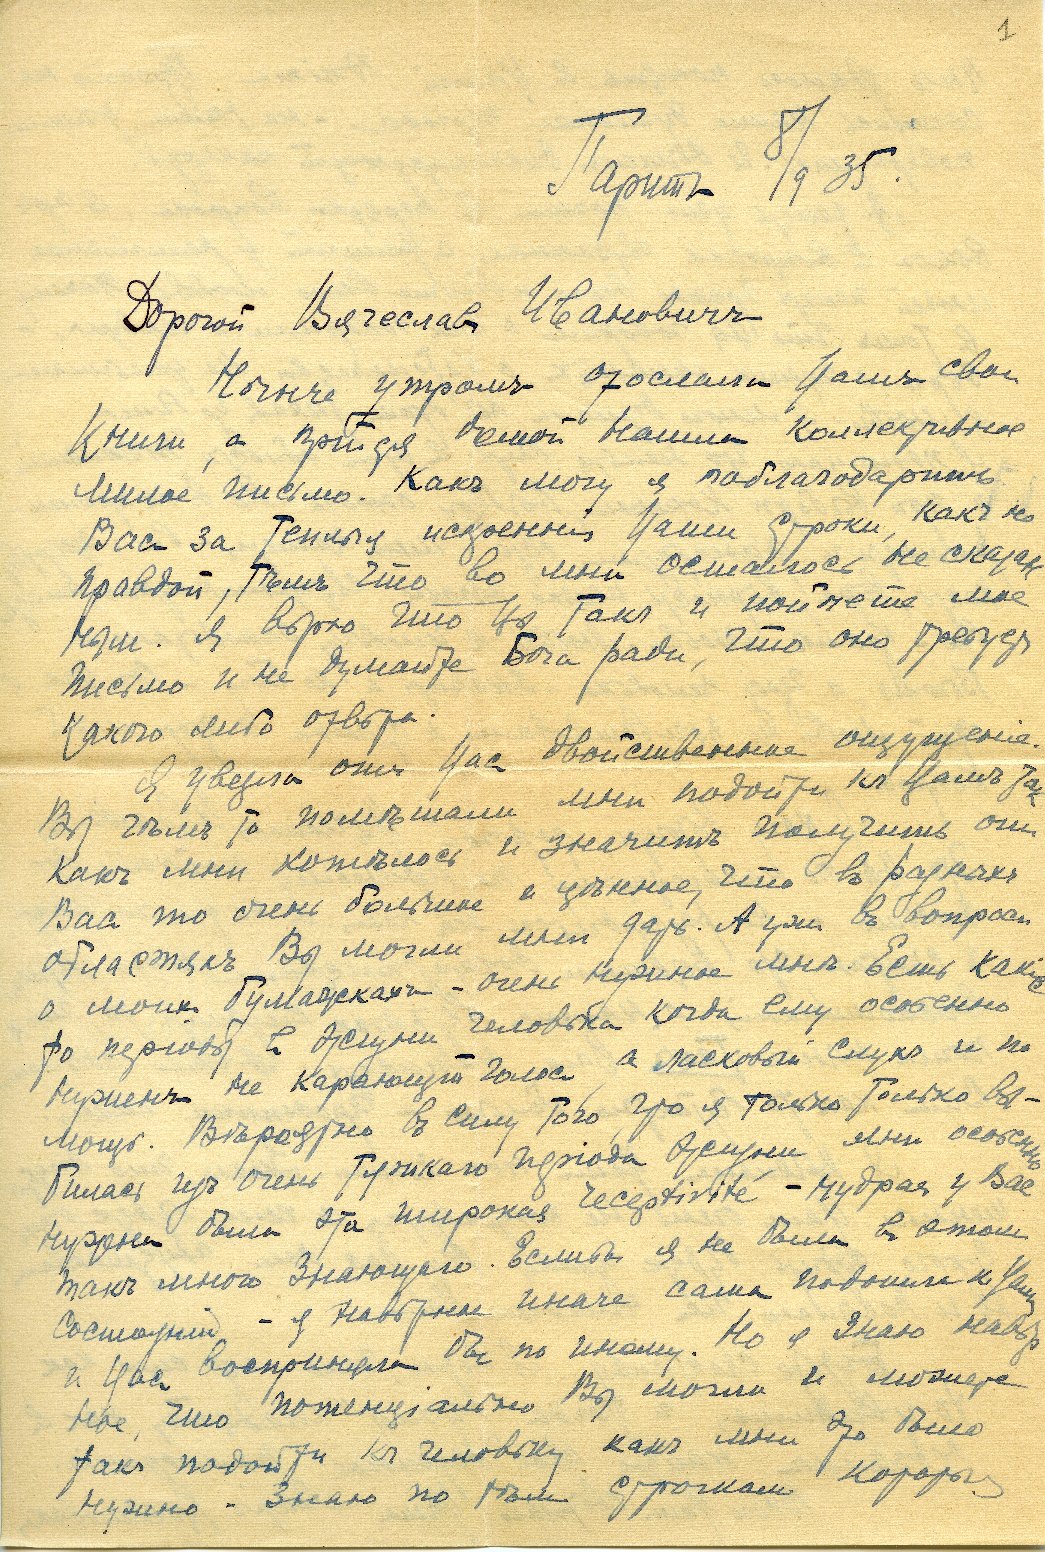 1
Парижъ 8/9 35.
Дорогой Вячеславъ Ивановичъ
Нынче утромъ отослала Вамъ свои
книги, а придя домой нашла коллективное
милое письмо. Какъ могу я поблагодарить
Васъ за теплыя искреннія Ваши строки, какъ не
правдой, тѣмъ что во мнѣ осталось не сказан
нымъ. Я вѣрю что Вы такъ и поймете мое
письмо и не думайте Бога ради, что оно требуетъ
какого либо отвѣта.
Я увезла отъ Васъ двойственное ощущеніе.
Вы чѣмъ то помѣшали мнѣ подойти къ Вамъ такъ
какъ мнѣ хотѣлось и значитъ получить отъ
Васъ то очень большое и цѣнное, что въ разныхъ
областяхъ Вы могли мнѣ дать. А ужъ въ вопросѣ
о моихъ бумажкахъ - очень нужное мнѣ. Есть какіе
то періоды въ жизни человѣка когда ему особенно
нуженъ не карающій голосъ а ласковый слухъ и по
мощь. Вѣроятно въ силу того, что я только только вы-
билась изъ очень тяжкаго періода жизни мнѣ особенно
нужна была эта широкая receptivité - мудрая у Васъ
такъ много знающаго. Еслибы я не была въ этомъ
состояніи - я навѣрное иначе сама подошла къ Вамъ
и Васъ восприняла бы по иному. Но я знаю навѣр
ное, что потенціально Вы могли и можете
такъ подойти къ человѣку какъ мнѣ это было
нужно - знаю по тѣмъ строчкамъ которыя